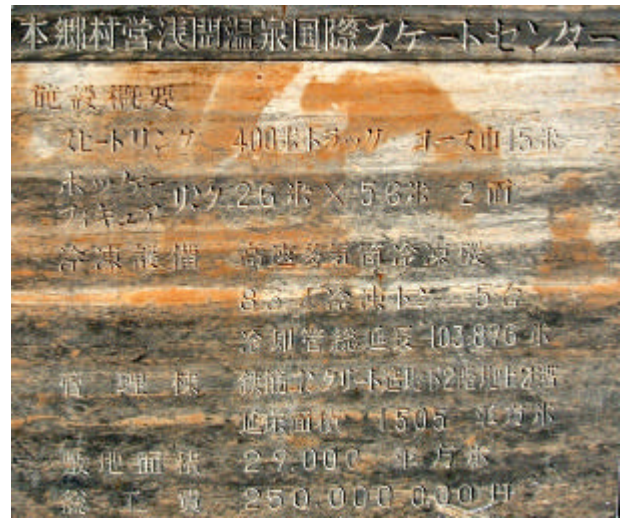 本郷村営浅間温泉国際スケートセンター
施設概要
スピードリンク 400米トラック コース巾15米
ホッケー
フィギュアリンク 26米×58米 2面
冷凍設備 高速多気筒冷凍機
冷凍トン 5台
冷却管総延長 103,896米
管理棟 鉄筋コンクリート造地下2階地上2階
延床面積 1505 平方米
敷地面積 29,000 平方米
総工費 250,000,000円